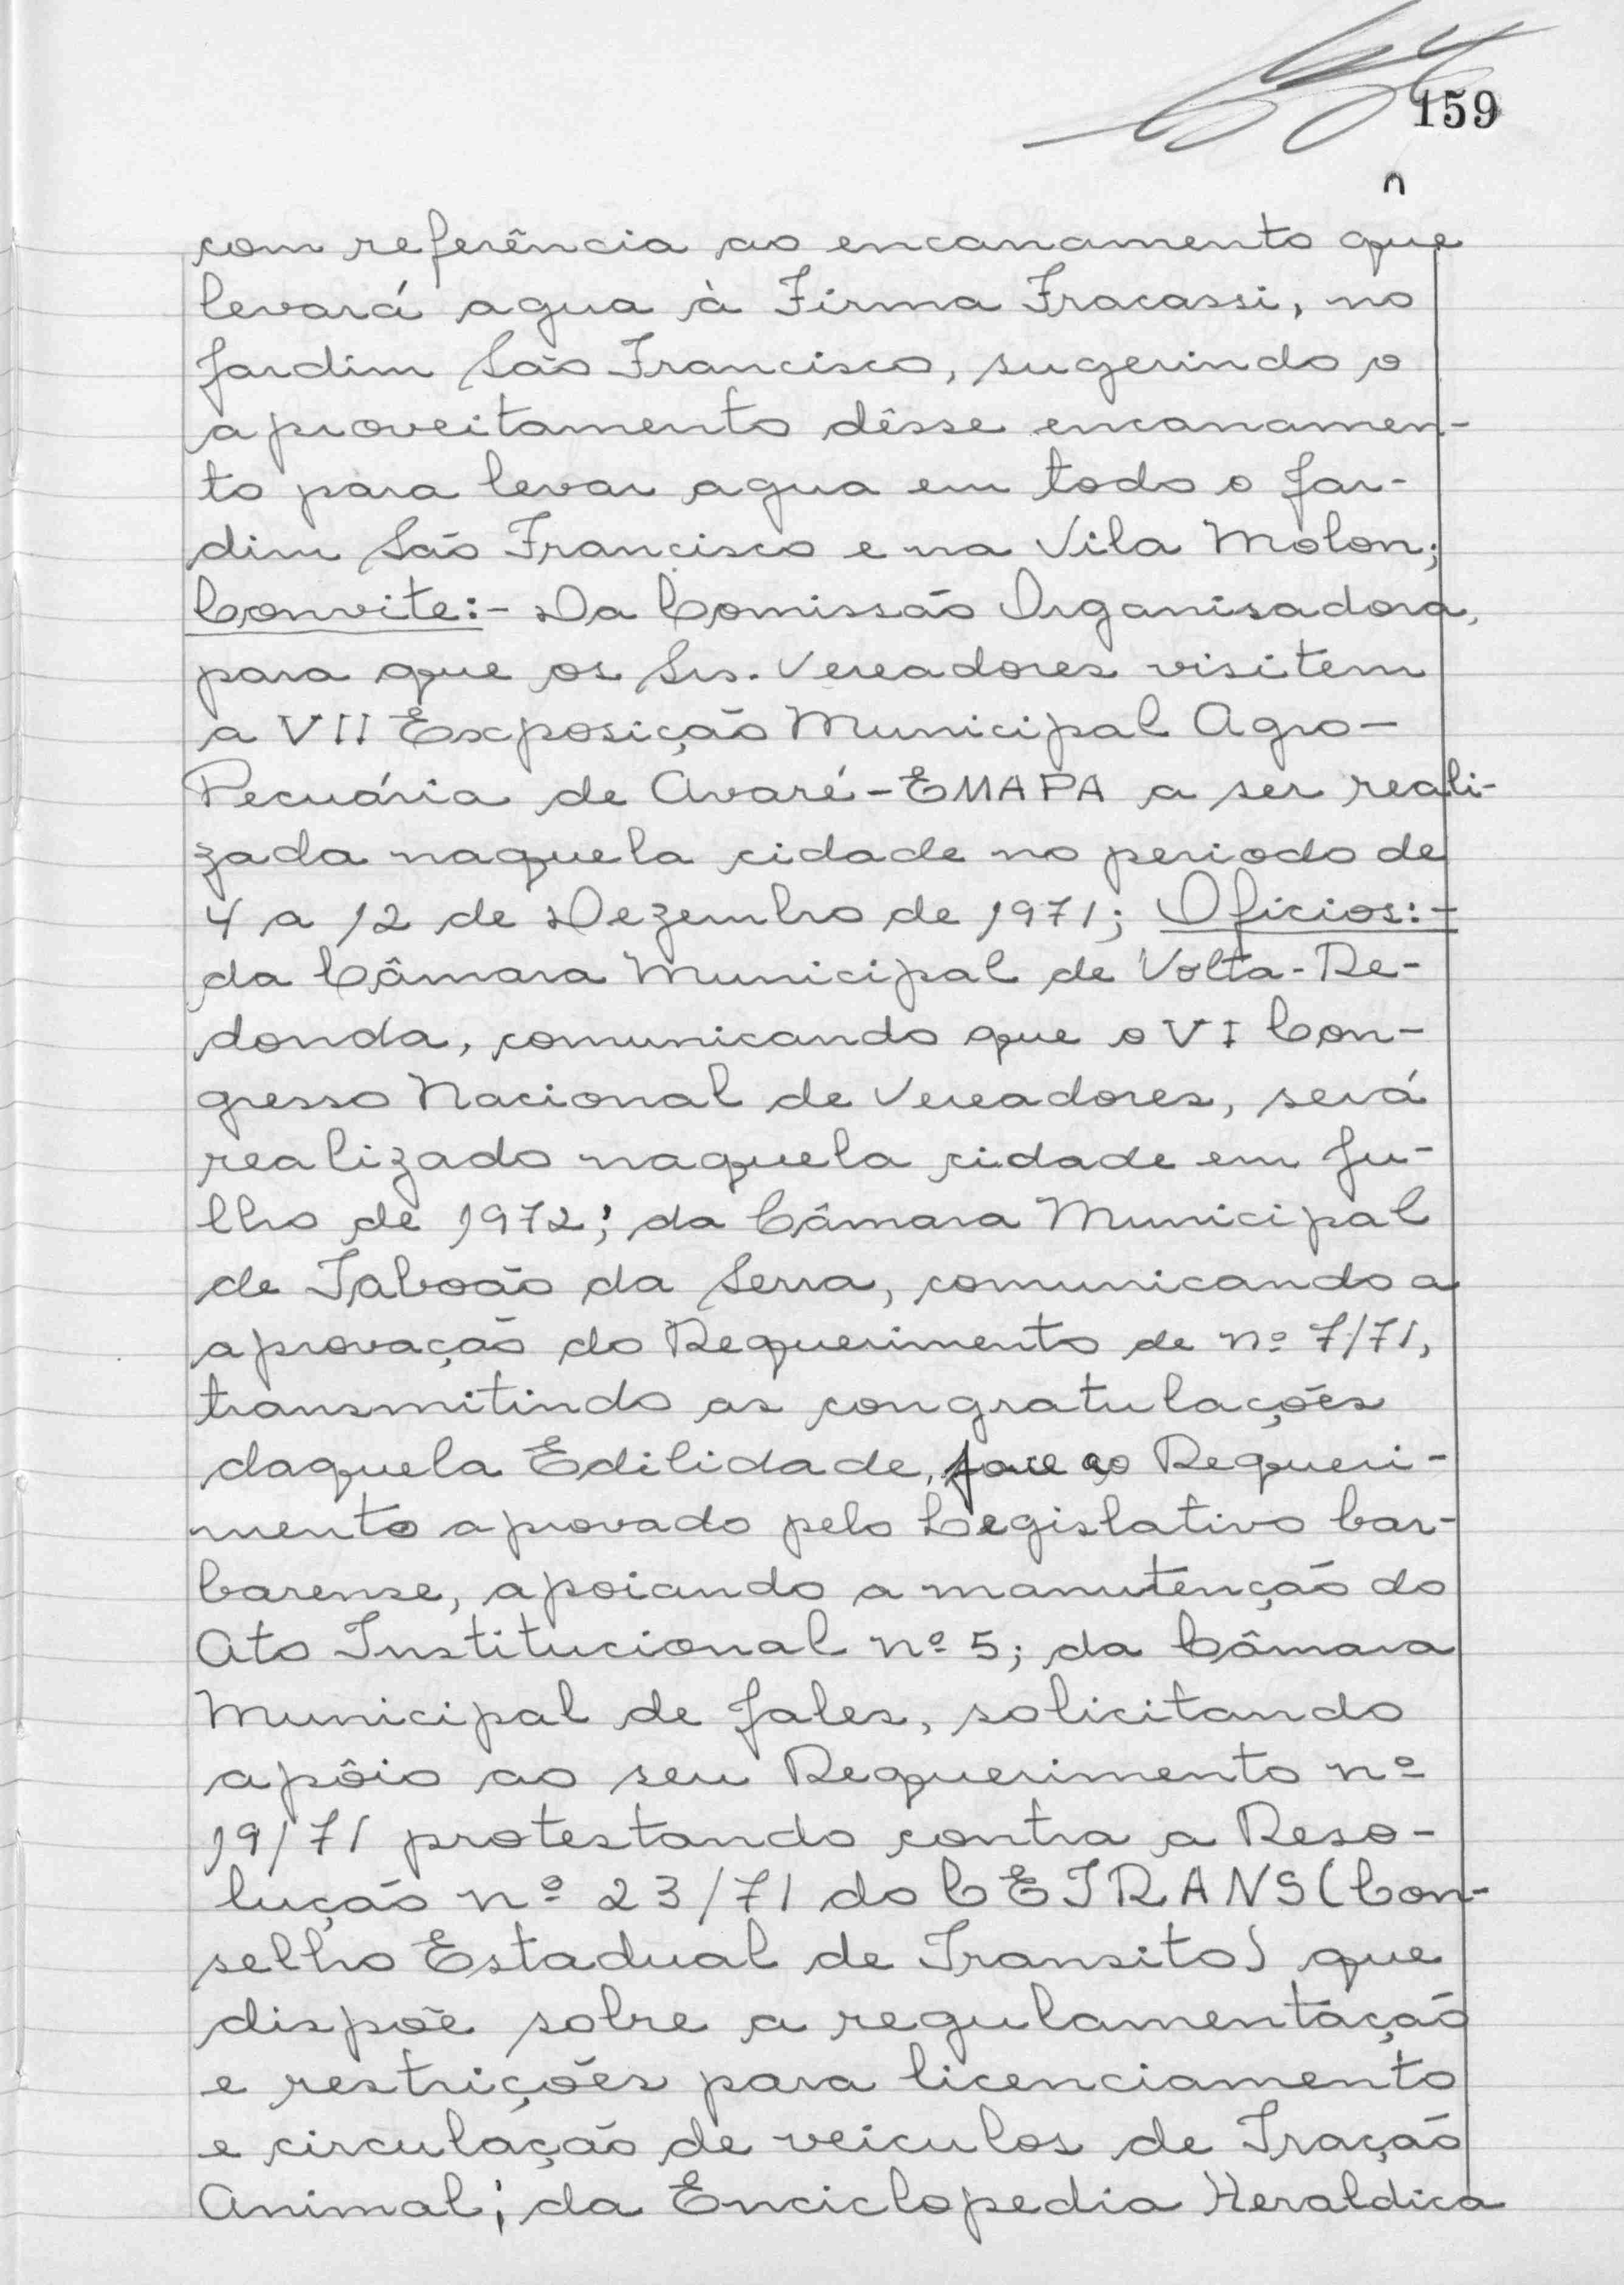 159
com referência ao encanamento que
levará agua à Firma Fracassi, no
Jardim São Francisco, sugerindo o
aproveitamento dêsse encanamen-
to para levar agua em todo o Jar-
dim São Francisco e na Vila Molon;
Convite:- Da Comissão Organisadora,
para que os Srs. Vereadores visitem
a VII Exposição Municipal Agro-
Pecuária de Avaré-EMAPA a ser reali-
zada naquela cidade no periodo de
4 a 12 de Dezembro de 1971; Oficios:-
da Câmara Municipal de Volta-Re-
donda, comunicando que o VI Con-
gresso Nacional de Vereadores, será
realizado naquela cidade em Ju-
lho de 1972; da Câmara Municipal
de Taboão da Serra, comunicando a
aprovação do Requerimento de nº 7/71,
transmitindo as congratulações
daquela Edilidade, face ao Requeri-
mento aprovado pelo Legislativo bar-
barense, apoiando a manutenção do
Ato Institucional nº 5; da Câmara
Municipal de Jales, solicitando
apôio ao seu Requerimento nº
19/71 protestando contra a Reso-
lução nº 23/71 do CETRANS (Con-
selho Estadual de Transito) que
dispõe sobre a regulamentação
e restrições para licenciamento
e circulação de veiculos de Tração
Animal; da Enciclopedia Heraldica